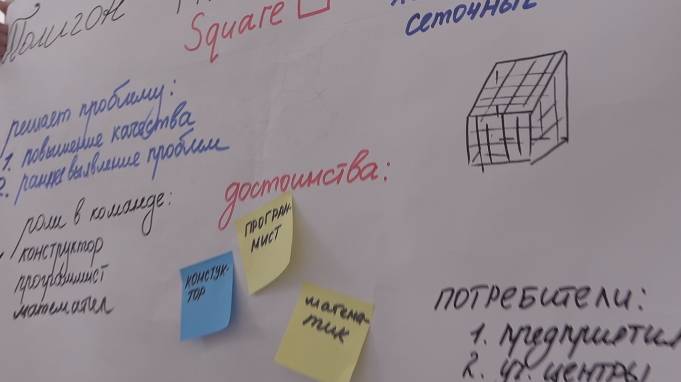 Полигон
Square
сеточные
решает проблему:
1. повышение качества
2. раннее выявление проблем
достоинства:
роли в команде:
конструктор
программист
математик
ПРОГРАМ-
МИСТ
КОНСТУК-
ТОР
МАТЕМА-
ТИК
ПОТРЕБИТЕЛИ:
1. предприятия
2. уч. центры